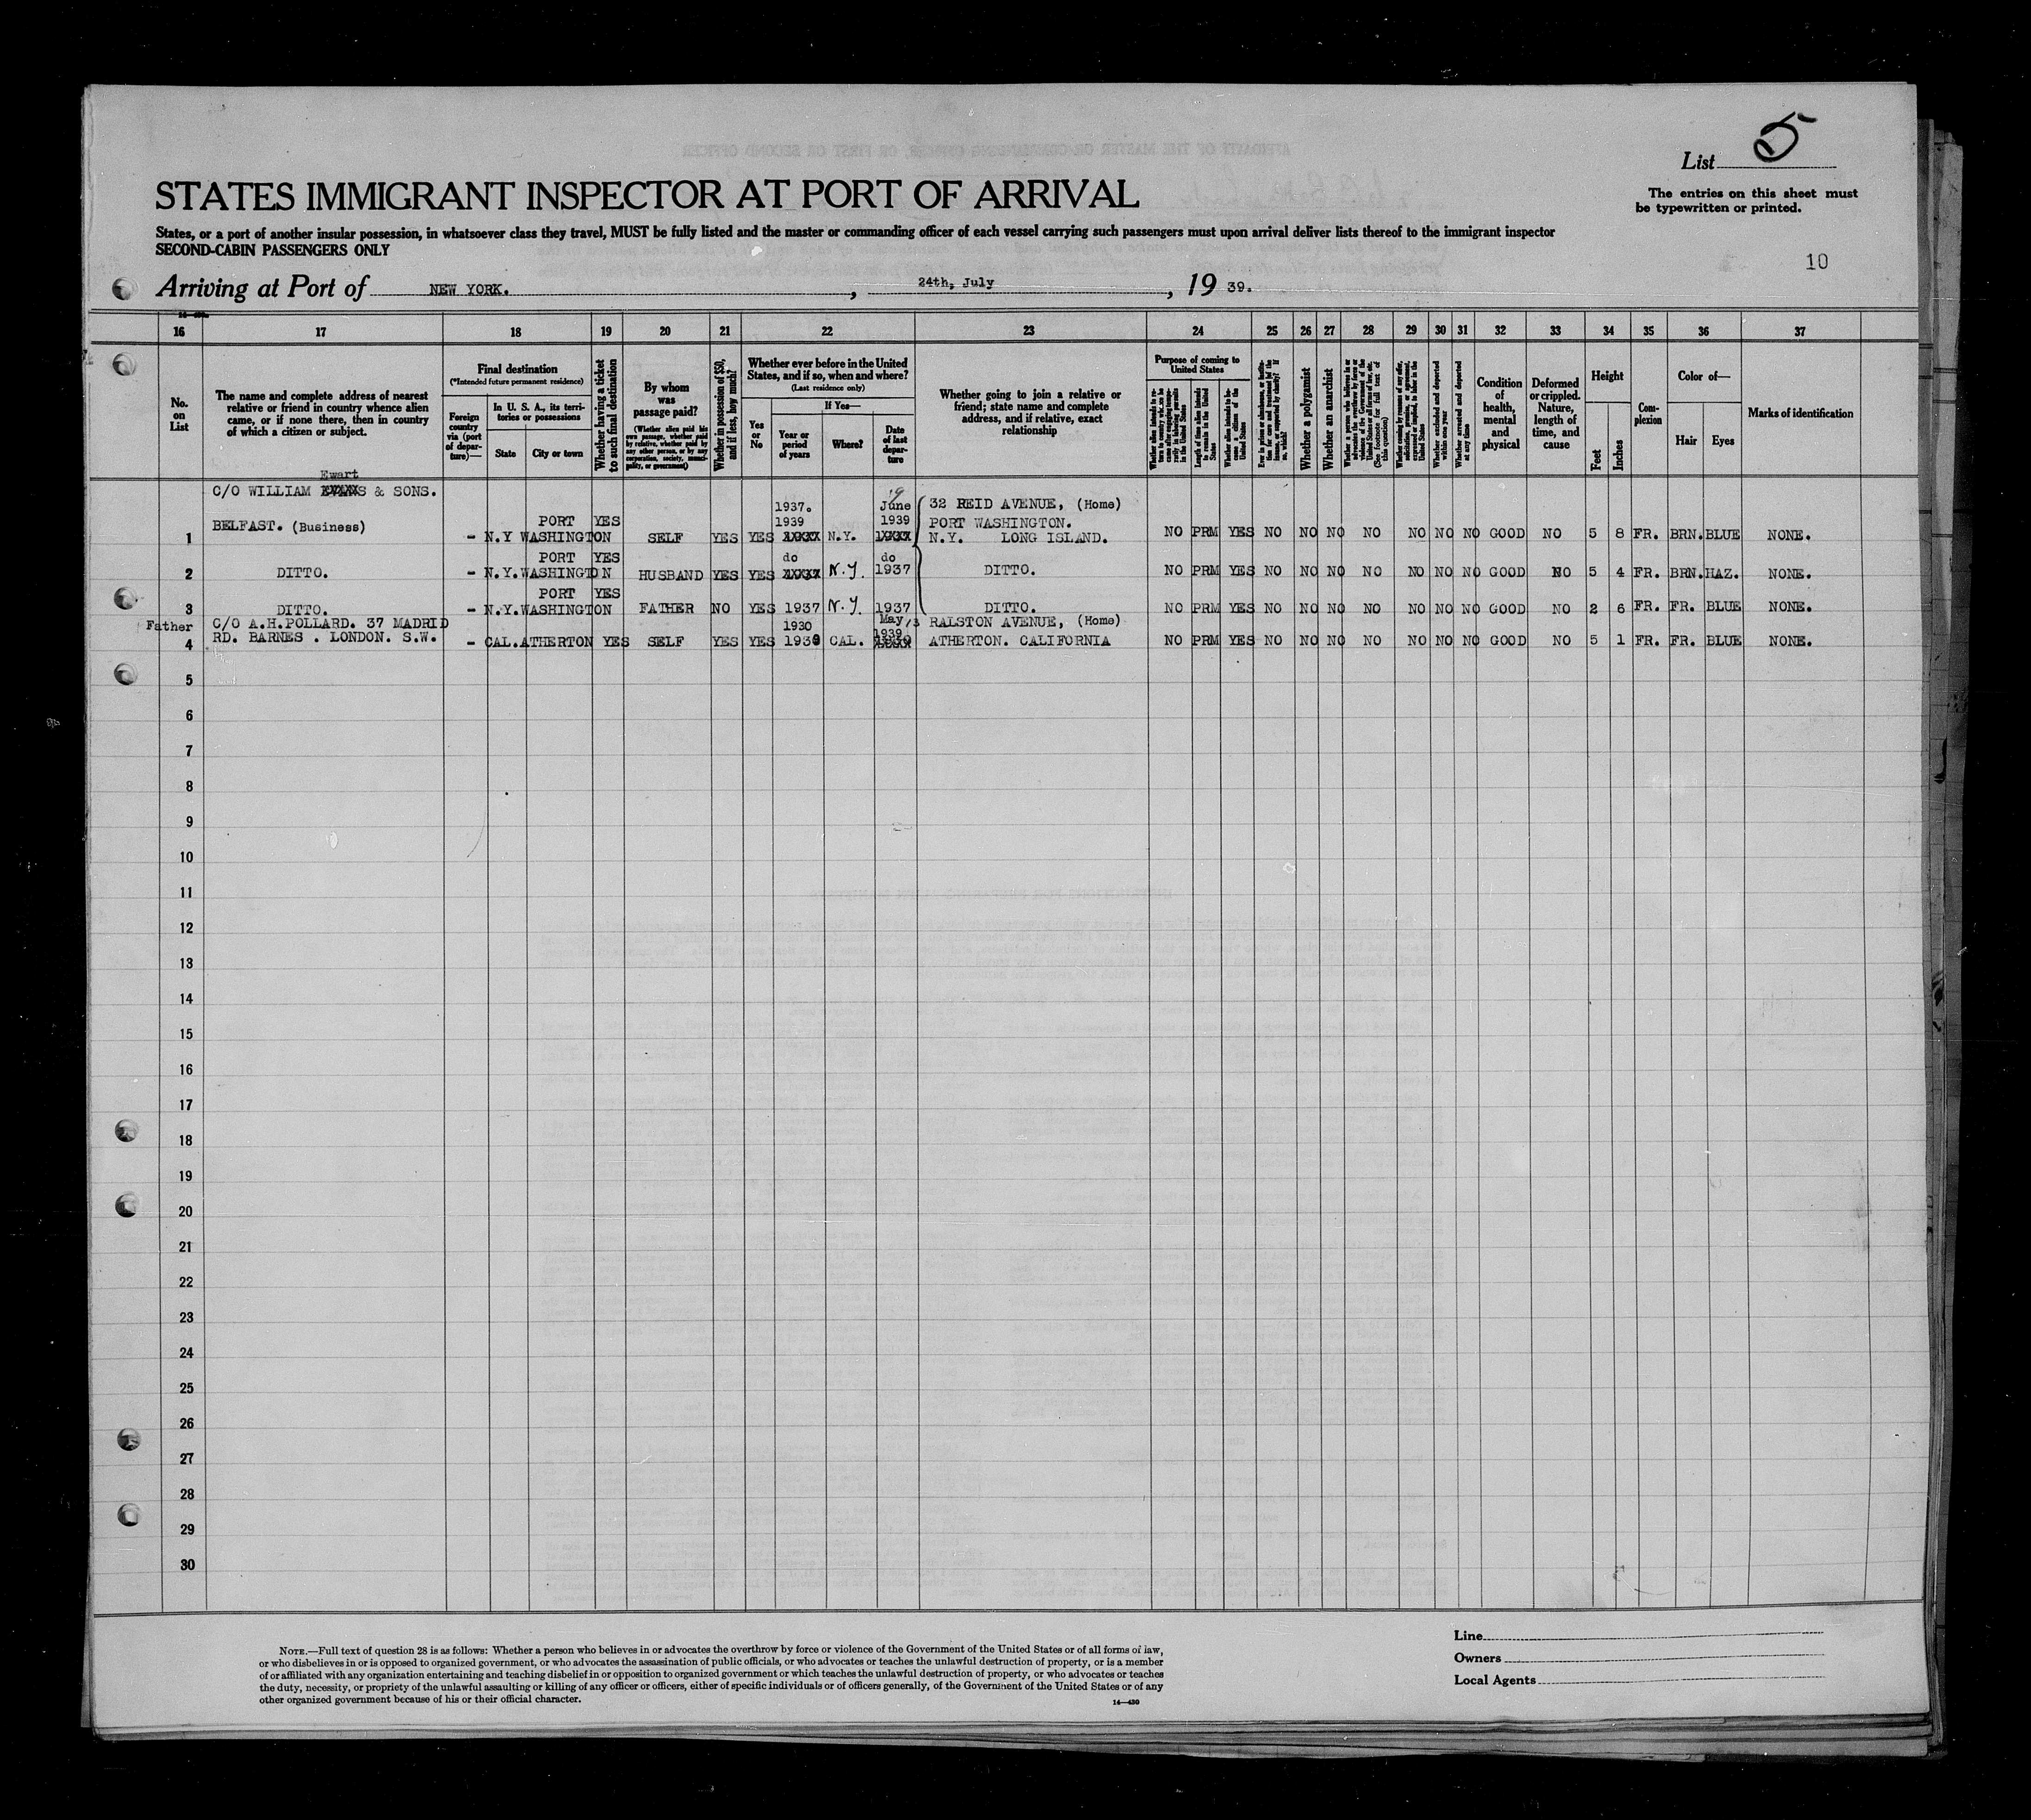 List 5
STATES IMMIGRANT INSPECTOR AT PORT OF ARRIVAL
The entries on this sheet must
be typewritten or printed.
States, or a port of another insular possession, in whatsoever class they travel, MUST be fully listed and the master or commanding officer of each vessel carrying such passengers must upon arrival deliver lists thereof to the immigrant inspector
SECOND-CABIN PASSENGERS ONLY
10
Arriving at Port of NEW YORK. , 24th, July , 19 39.
16 17 18 19 20 21 22 23 24 25 26 27 28 29 30 31 32 33 34 35 36 37
No. on List
The name and complete address of nearest
relative or friend in country whence alien
came, or if none there, then in country
of which a citizen or subject.
Final destination
(*Intended future permanent residence)
Foreign country via (port of departure)—
In U. S. A., its territories or possessions
State
City or town
Whether having a ticket to such final destination
By whom was passage paid?
(Whether alien paid his own passage, whether paid by relative, whether paid by any other person, or by any corporation, society, municipality, or government)
Whether in possession of $50, and if less, how much?
Whether ever before in the United
States, and if so, when and where?
(Last residence only)
Yes or No
If Yes—
Year or period of years
Where?
Date of last departure
Whether going to join a relative or
friend; state name and complete
address, and if relative, exact
relationship
Purpose of coming to United States
Length of time alien intends to remain in the United States
Whether alien intends to become a citizen of the United States
Whether a polygamist
Whether an anarchist
Whether excluded and deported within one year
Whether arrested and deported at any time
Condition of health, mental and physical
Deformed or crippled. Nature, length of time, and cause
Height
Feet
Inches
Complexion
Color of—
Hair
Eyes
Marks of identification
Ewart
C/O WILLIAM & SONS. June 19
BELFAST. (Business) PORT YES 1937. 1939 1939 32 REID AVENUE, (Home)
PORT WASHINGTON.
1 - N.Y WASHINGTON SELF YES YES N.Y. N.Y. LONG ISLAND. NO PRM YES NO NO NO NO NO NO NO GOOD NO 5 8 FR. BRN. BLUE NONE.
PORT YES do do
2 DITTO. - N.Y. WASHINGTON HUSBAND YES YES N.Y. 1937 DITTO. NO PRM YES NO NO NO NO NO NO NO GOOD NO 5 4 FR. BRN. HAZ. NONE.
PORT YES
3 DITTO. - N.Y. WASHINGTON FATHER NO YES 1937 N.Y. 1937 DITTO. NO PRM YES NO NO NO NO NO NO NO GOOD NO 2 6 FR. FR. BLUE NONE.
Father C/O A.H.POLLARD. 37 MADRID 1930 May 13 RALSTON AVENUE, (Home)
RD. BARNES . LONDON. S.W. 1939
4 - CAL. ATHERTON YES SELF YES YES 1939 CAL. ATHERTON. CALIFORNIA NO PRM YES NO NO NO NO NO NO NO GOOD NO 5 1 FR. FR. BLUE NONE.
5
6
7
8
9
10
11
12
13
14
15
16
17
18
19
20
21
22
23
24
25
26
27
28
29
30
NOTE.—Full text of question 28 is as follows: Whether a person who believes in or advocates the overthrow by force or violence of the Government of the United States or of all forms of law,
or who disbelieves in or is opposed to organized government, or who advocates the assassination of public officials, or who advocates or teaches the unlawful destruction of property, or is a member
of or affiliated with any organization entertaining and teaching disbelief in or opposition to organized government or which teaches the unlawful destruction of property, or who advocates or teaches
the duty, necessity, or propriety of the unlawful assaulting or killing of any officer or officers, either of specific individuals or of officers generally, of the Government of the United States or of any
other organized government because of his or their official character.
14—430
Line
Owners
Local Agents